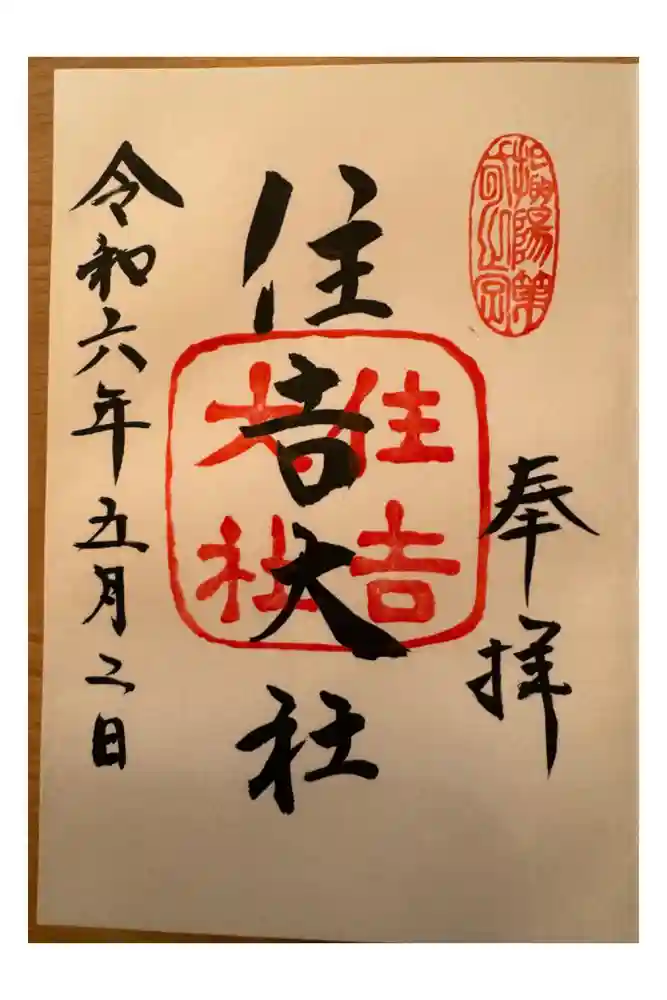 陽第
奉拝
住吉大社
住吉
大社
令和六年五月二日